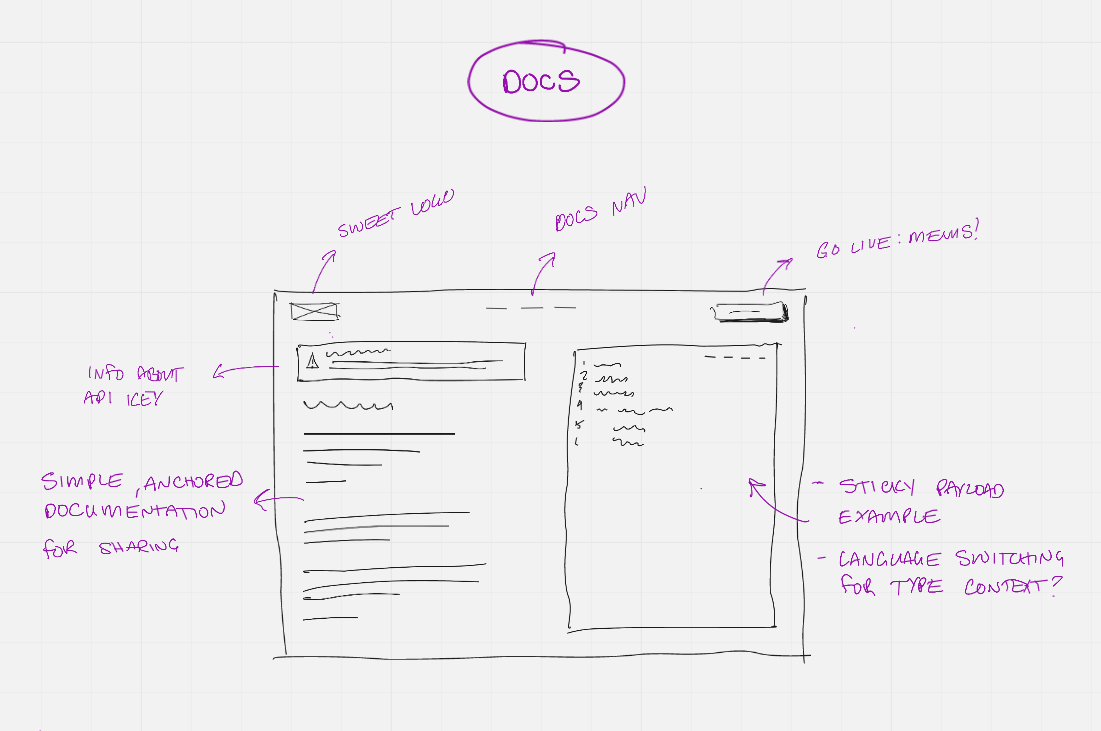 DOCS
SWEET LOGO
DOCS NAV
GO LIVE: MENUS!
INFO ABOUT
API KEY
SIMPLE, ANCHORED
DOCUMENTATION
FOR SHARING
1
2
3
4
5
- STICKY PAYLOAD
EXAMPLE
- LANGUAGE SWITCHING
FOR TYPE CONTEXT?